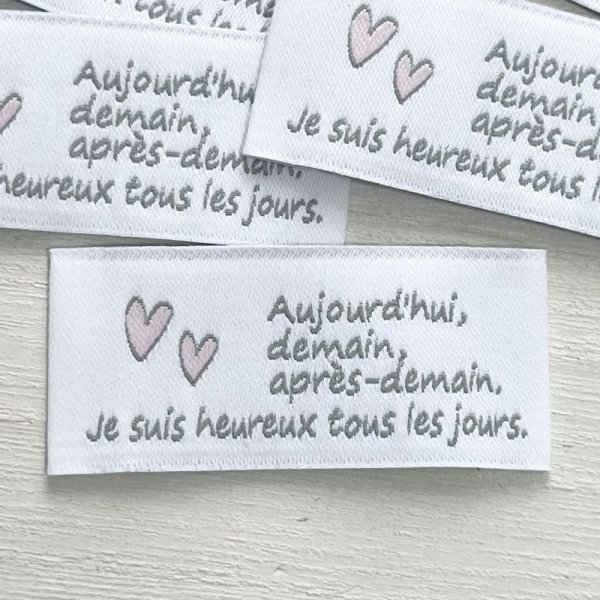 tous les jours.
Aujourd'hui,
demain,
après-demain.
heureux tous les jours.
Aujourd
demain,
après-d
Je suis heureux tous le
Aujourd'hui,
demain,
après-demain.
Je suis heureux tous les jours.